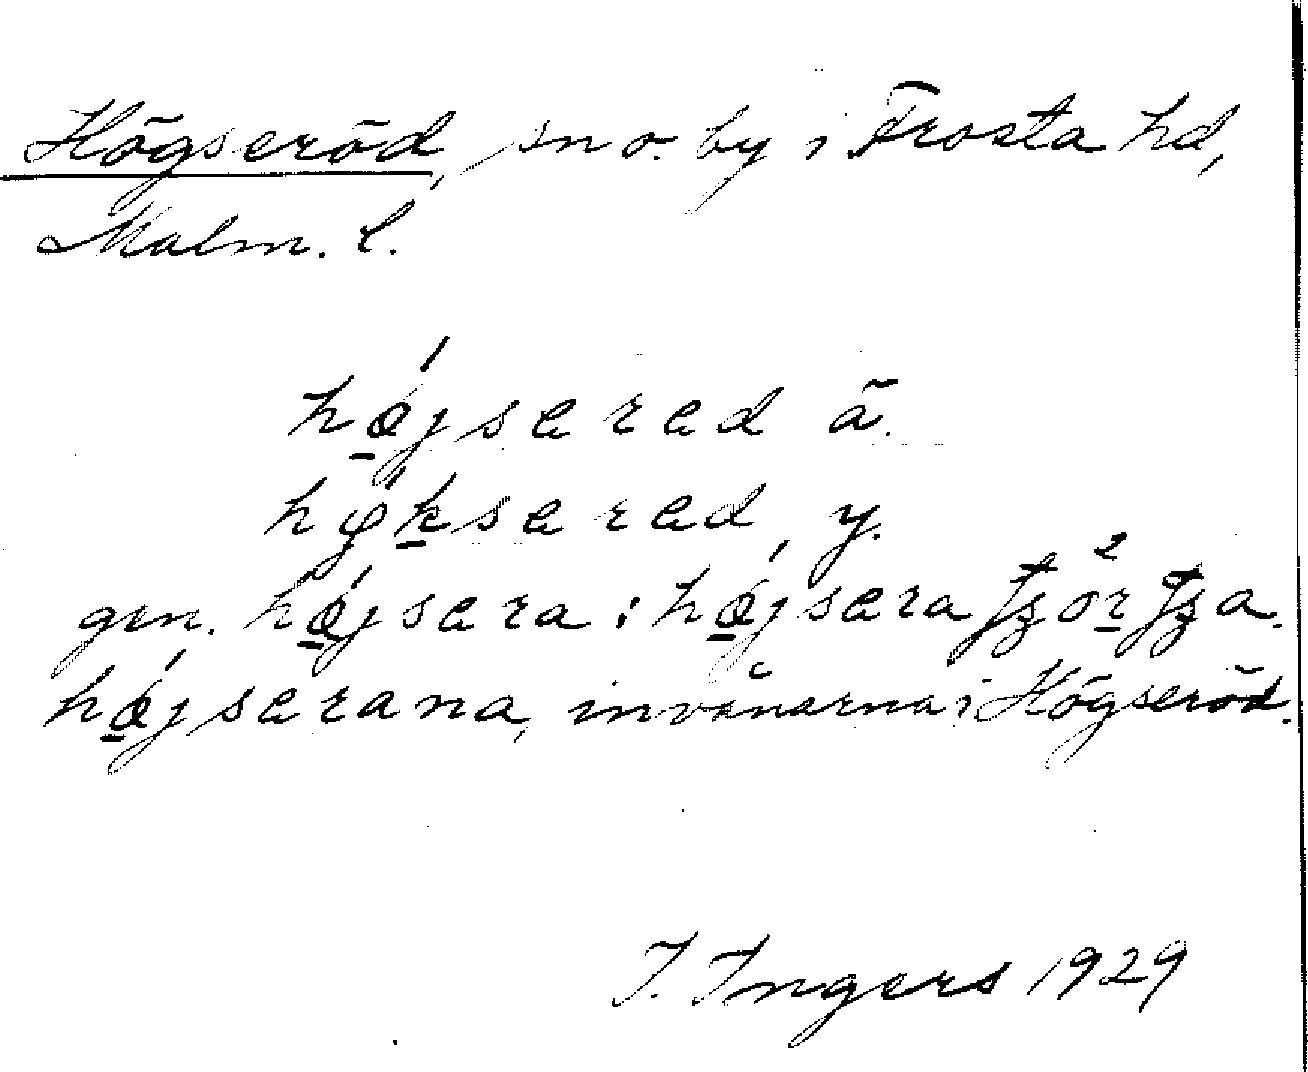 Högseröd, sn o. by i Frosta hd,
Malm. l.
hǿ̱jsered ä.
hǿ̨ḵsered, y.
gen. hǿ̱jsera : hǿ̱jsera
hǿ̱jserana, invånarna i Högseröd.
I. Ingers 1929